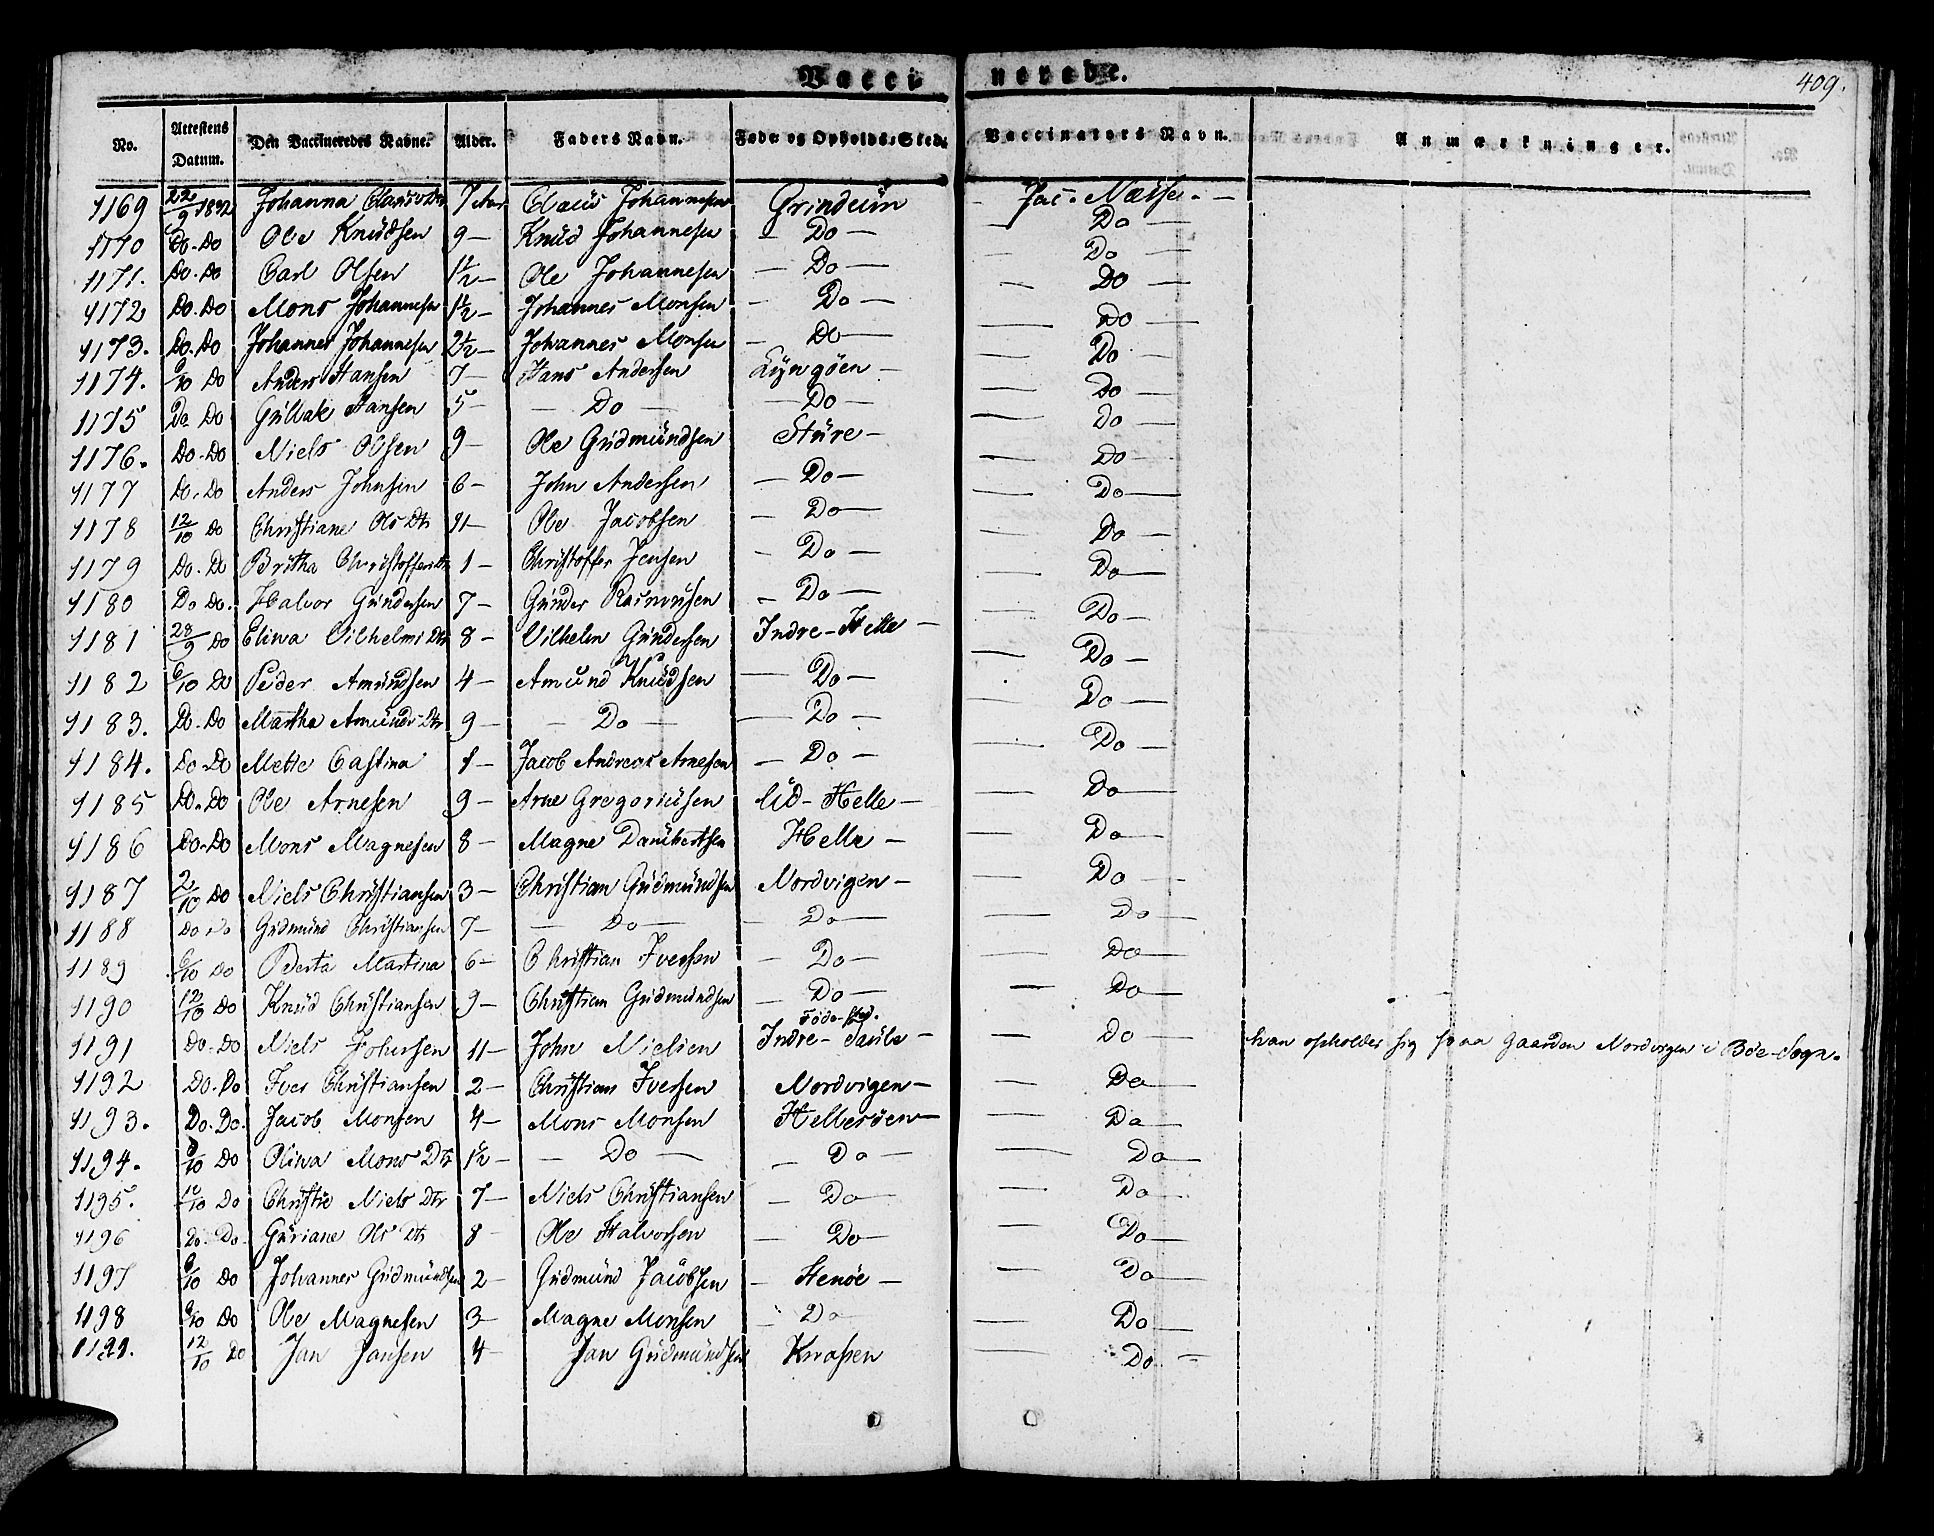 Vaccinerede. 409.
No. | Attestens Datum. | Den Vaccineredes Navne. | Alder. | Faders Navn. | Føde og Opholds-Sted. | Vaccinators Navn. | Anmærkninger.
1169 | 22/9 1832 | Johanna Claus Dtr | 7 Aar | Claüs Johannesen | Grindeün | Jac. Næsse. —
1170 | Do. Do | Ole Knüdsen | 9 — | Knüd Johannesen | — Do — | — Do —
1171. | Do. Do | Carl Olsen | 1½ — | Ole Johannesen | — Do — | — Do —
1172 | Do. Do | Mons Johannesen | 1½ — | Johannes Monsen | — Do — | — Do —
1173. | Do. Do | Johannes Johannesen | 2½ — | Johannes Monsen | — Do — | — Do —
1174. | 9/10 Do | Anders Hansen | 7 — | Hans Andersen | Lÿngöen — | — Do —
1175 | Do Do | Gülbak Hansen | 5 — | — Do — | — Do — | — Do —
1176. | Do. Do | Niels Olsen | 9 — | Ole Güdmündsen | Stüre — | — Do —
1177 | Do. Do | Anders Johnsen | 6 — | John Andersen | — Do — | — Do —
1178 | 12/10 Do | Christiane Ols Dtr | 11 — | Ole Jacobsen | — Do — | — Do —
1179 | Do. Do | Britha Christoffers Dtr | 1 — | Christoffer Jensen | — Do — | — Do —
1180 | Do Do. | Halvor Gündersen | 7 — | Günder Rasmusen | — Do — | — Do —
1181 | 28/9 Do | Eliwa Vilhelms Dtr | 8 — | Vilhelm Gündersen | Indre-Helle — | — Do —
1182 | 6/10 Do | Peder Amündsen | 4 — | Amünd Knüdsen | — Do — | — Do —
1183. | Do. Do | Martha Amünds Dtr | 9 — | — Do — | — Do — | — Do —
1184. | Do. Do | Mette Castina | 1 — | Jacob Andreas Arnesen | — Do — | — Do —
1185 | Do. Do | Ole Arnesen | 9 — | Arne Gregoriüsen | Üd-Helle — | — Do —
1186 | Do. Do | Mons Magnesen | 8 — | Magne Danikertsen | Helle — | — Do —
1187 | 2/10 Do | Niels Christiansen | 3 — | Christian Güdmündsen | Nordvigen — | — Do —
1188 | Do Do | Güdmünd Christiansen | 7 — | — Do — | — Do — | — Do —
1189 | 6/10 Do | Berta Martina | 6 — | Christian Iversen | — Do — | — Do —
1190 | 12/10 Do | Knüd Christiansen | 9 — | Christian Güdmündsen | — Do — | — Do —
1191 | Do. Do | Niels Johnsen | 11 — | John Nielsen | Føde-sted. Indre-Taüle — | — Do — | han opholder sig paa Gaarden Nordvigen i Bøe-Sogn.
1192 | Do. Do | Iver Christiansen | 2 — | Christian Iversen | Nordvigen — | — Do —
1193. | Do. Do. | Jacob Monsen | 4 — | Mons Monsen | Hellesöen — | — Do —
1194. | 8/10 Do | Oliwa Mons Dtr | 1½ — | — Do — | — Do — | — Do —
1195. | 10/10 Do | Christie Niels Dtr | 7 — | Niels Christiansen | — Do — | — Do —
1196 | Do. Do. | Güriane Ols Dtr | 8 — | Ole Halvorsen | — Do — | — Do —
1197 | 9/10 Do | Johannes Güdmündsen | 2 — | Güdmünd Jacobsen | — Stenöe — | — Do —
1198 | 9/10 Do | Ole Magnesen | 3 — | Magne Monsen | — Do | — Do —
1199. | 12/10 Do | Jan Jansen | 4 — | Jan Güdmündsen | Krossen | — Do. —